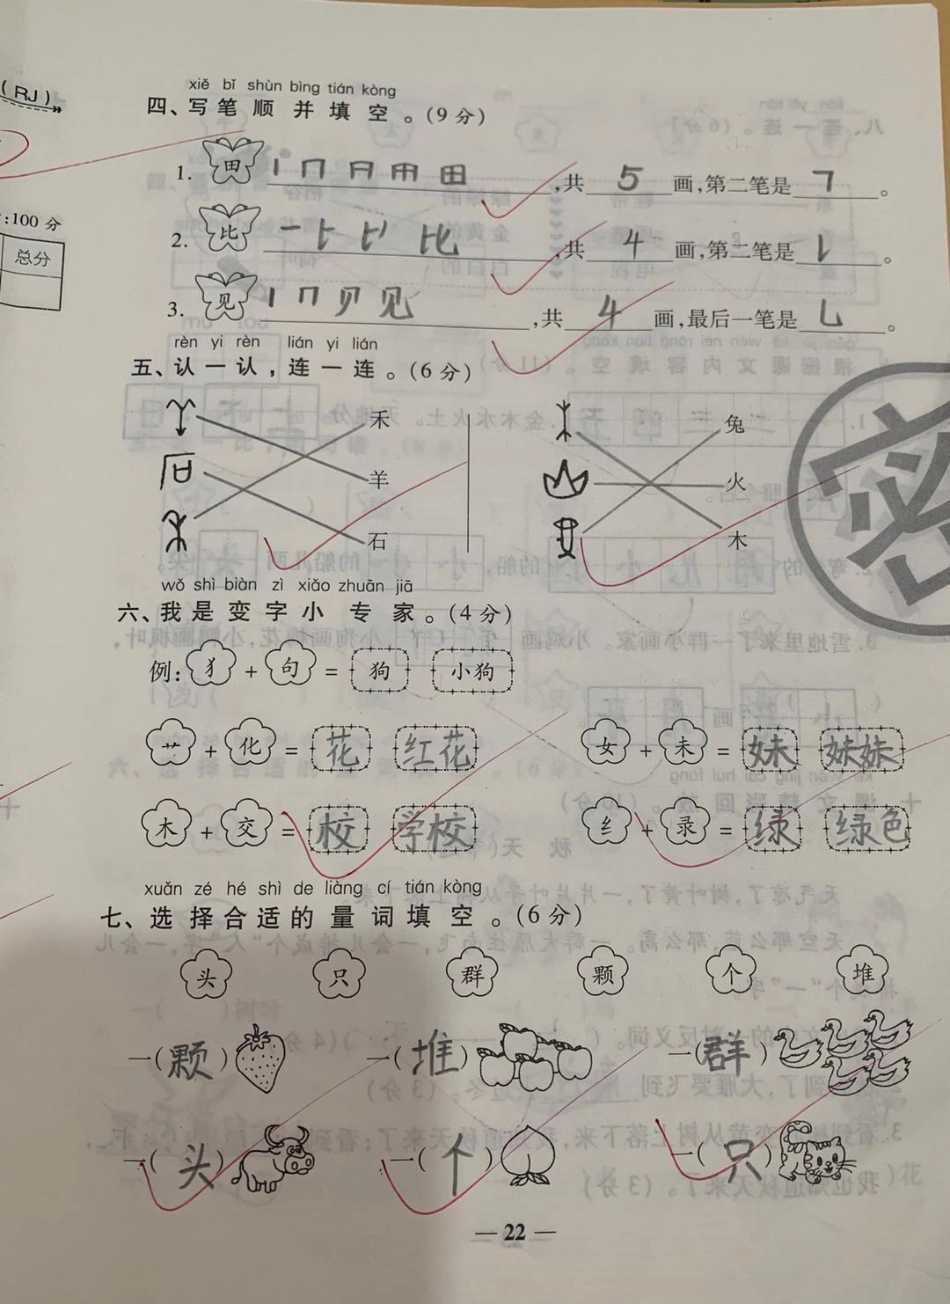 (RJ)
:100 分
总分
xiě bǐ shùn bìng tián kòng
四、写 笔 顺 并 填 空 。(9 分)
1. 田 丨 冂 日 用 田 ,共 5 画,第二笔是 ㇕ 。
2. 比 一 比 ,共 4 画,第二笔是 。
3. 见 丨 冂 贝 见 ,共 4 画,最后一笔是 乚 。
rèn yi rèn lián yi lián
五、认 一 认 , 连 一 连 。(6 分)
禾 兔
羊 火
石 木
密
wǒ shì biàn zì xiǎo zhuān jiā
六、我 是 变 字 小 专 家 。(4 分)
例: 犭 + 句 = 狗 小狗
艹 + 化 = 花 红花 女 + 未 = 妹 妹妹
木 + 交 = 校 学校 纟 + 录 = 绿 绿色
xuǎn zé hé shì de liàng cí tián kòng
七、选 择 合 适 的 量 词 填 空 。(6 分)
头 只 群 颗 个 堆
一( 颗 ) 一( 堆 ) 一( 群 )
一( 头 ) 一( 个 ) 一( 只 )
— 22 —